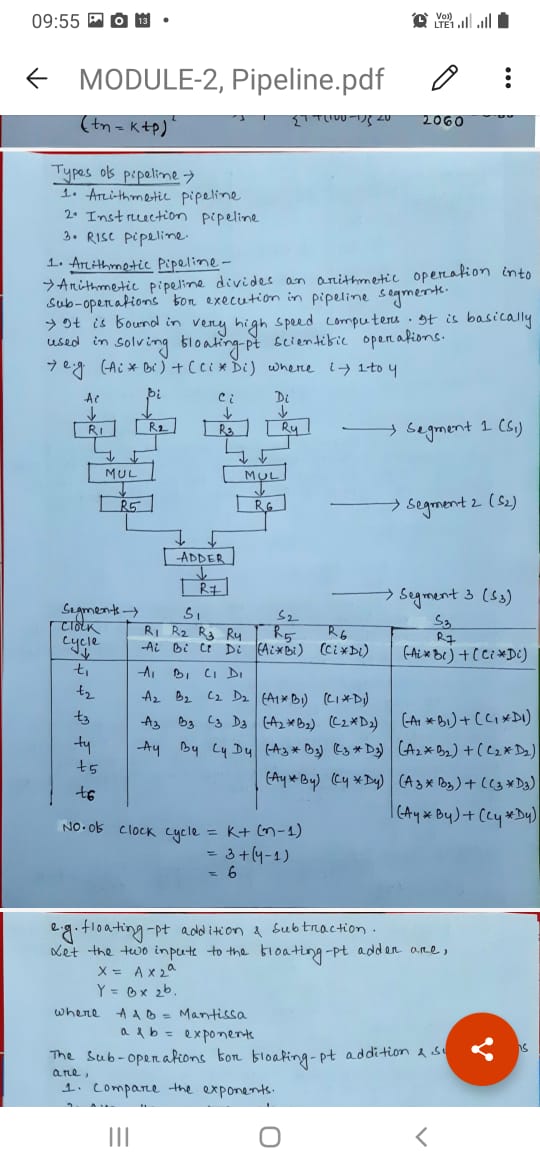 09:55
13
Vo))
LTE1
MODULE-2, Pipeline.pdf
(tn = Ktp)
2060
Types of pipeline →
1. Arithmetic pipeline
2. Instruction pipeline
3. RISC pipeline.
1. Arithmetic Pipeline –
→ Arithmetic pipeline divides an arithmetic operation into
sub-operations for execution in pipeline segments.
→ It is found in very high speed computers. It is basically
used in solving floating-pt scientific operations.
→ e.g (Ai * Bi) + (Ci * Di) where i → 1 to 4
Ai Bi Ci Di
R1 R2 R3 R4 → segment 1 (S1)
MUL MUL
R5 R6 → segment 2 (S2)
ADDER
R7 → segment 3 (S3)
Segments → S1 S2 S3
Clock R1 R2 R3 R4 R5 R6 R7
cycle Ai Bi Ci Di (Ai*Bi) (Ci*Di) (Ai*Bi)+(Ci*Di)
t1 A1 B1 C1 D1
t2 A2 B2 C2 D2 (A1*B1) (C1*D1)
t3 A3 B3 C3 D3 (A2*B2) (C2*D2) (A1*B1)+(C1*D1)
t4 A4 B4 C4 D4 (A3*B3) (C3*D3) (A2*B2)+(C2*D2)
t5 (A4*B4) (C4*D4) (A3*B3)+(C3*D3)
t6 (A4*B4)+(C4*D4)
No. of clock cycle = K+(n-1)
= 3+(4-1)
= 6
e.g. floating-pt addition & subtraction.
Let the two inputs to the floating-pt adder are,
X = A x 2ᵃ
Y = B x 2ᵇ.
where A & B = Mantissa
a & b = exponents
The sub-operations for floating-pt addition &
are,
1. Compare the exponents.